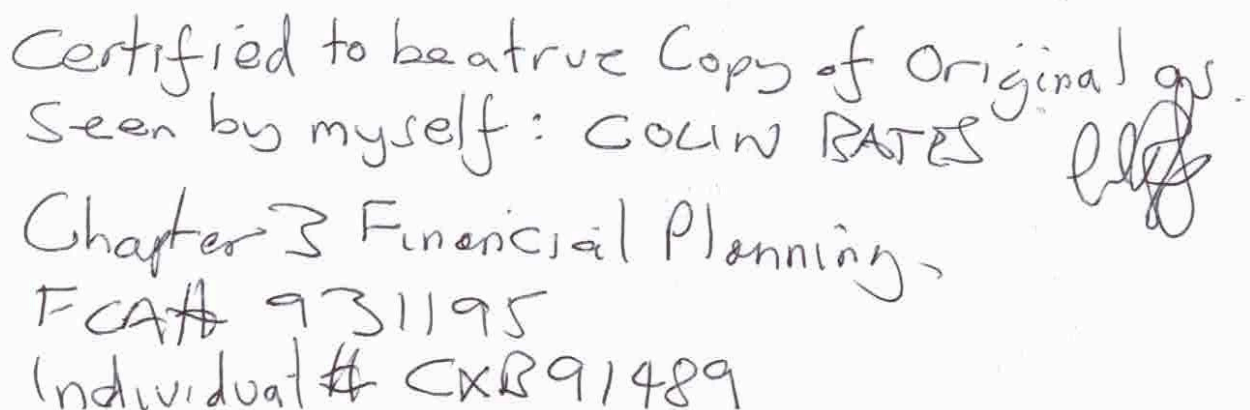 Certified to be a true Copy of Original as
Seen by myself: COLIN BATES
Chapter 3 Financial Planning,
FCA# 931195
Individual # CXB91489